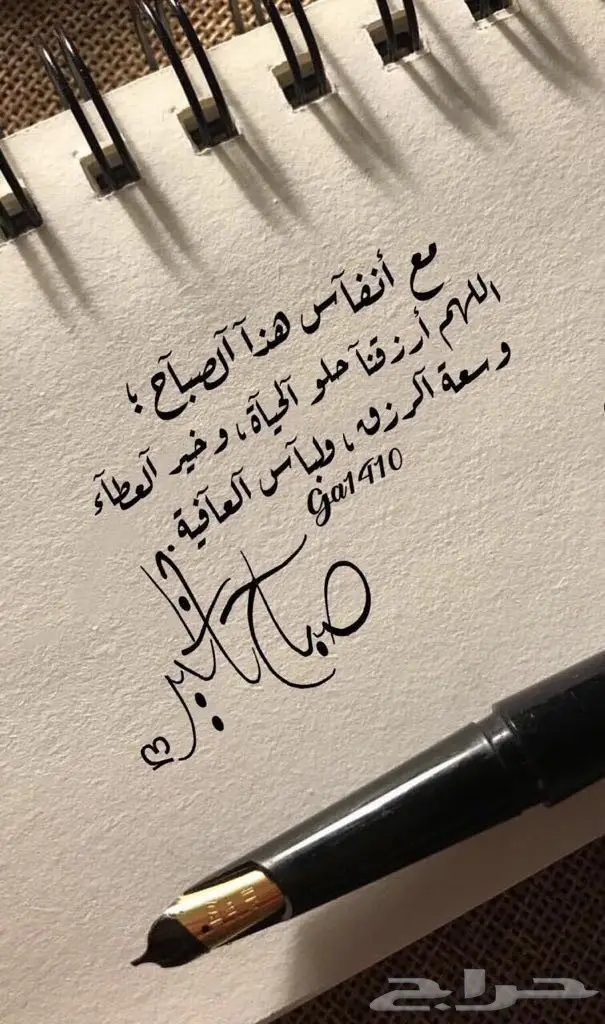 مع أنفآس هذآ آلصبآح ؛
اللهم أرزقنآ حلو آلحيآة ، وخير آلعطآء
وسعة آلرزق ، ولبآس آلعآفية .
Ga1410
صباح الخير
حراج